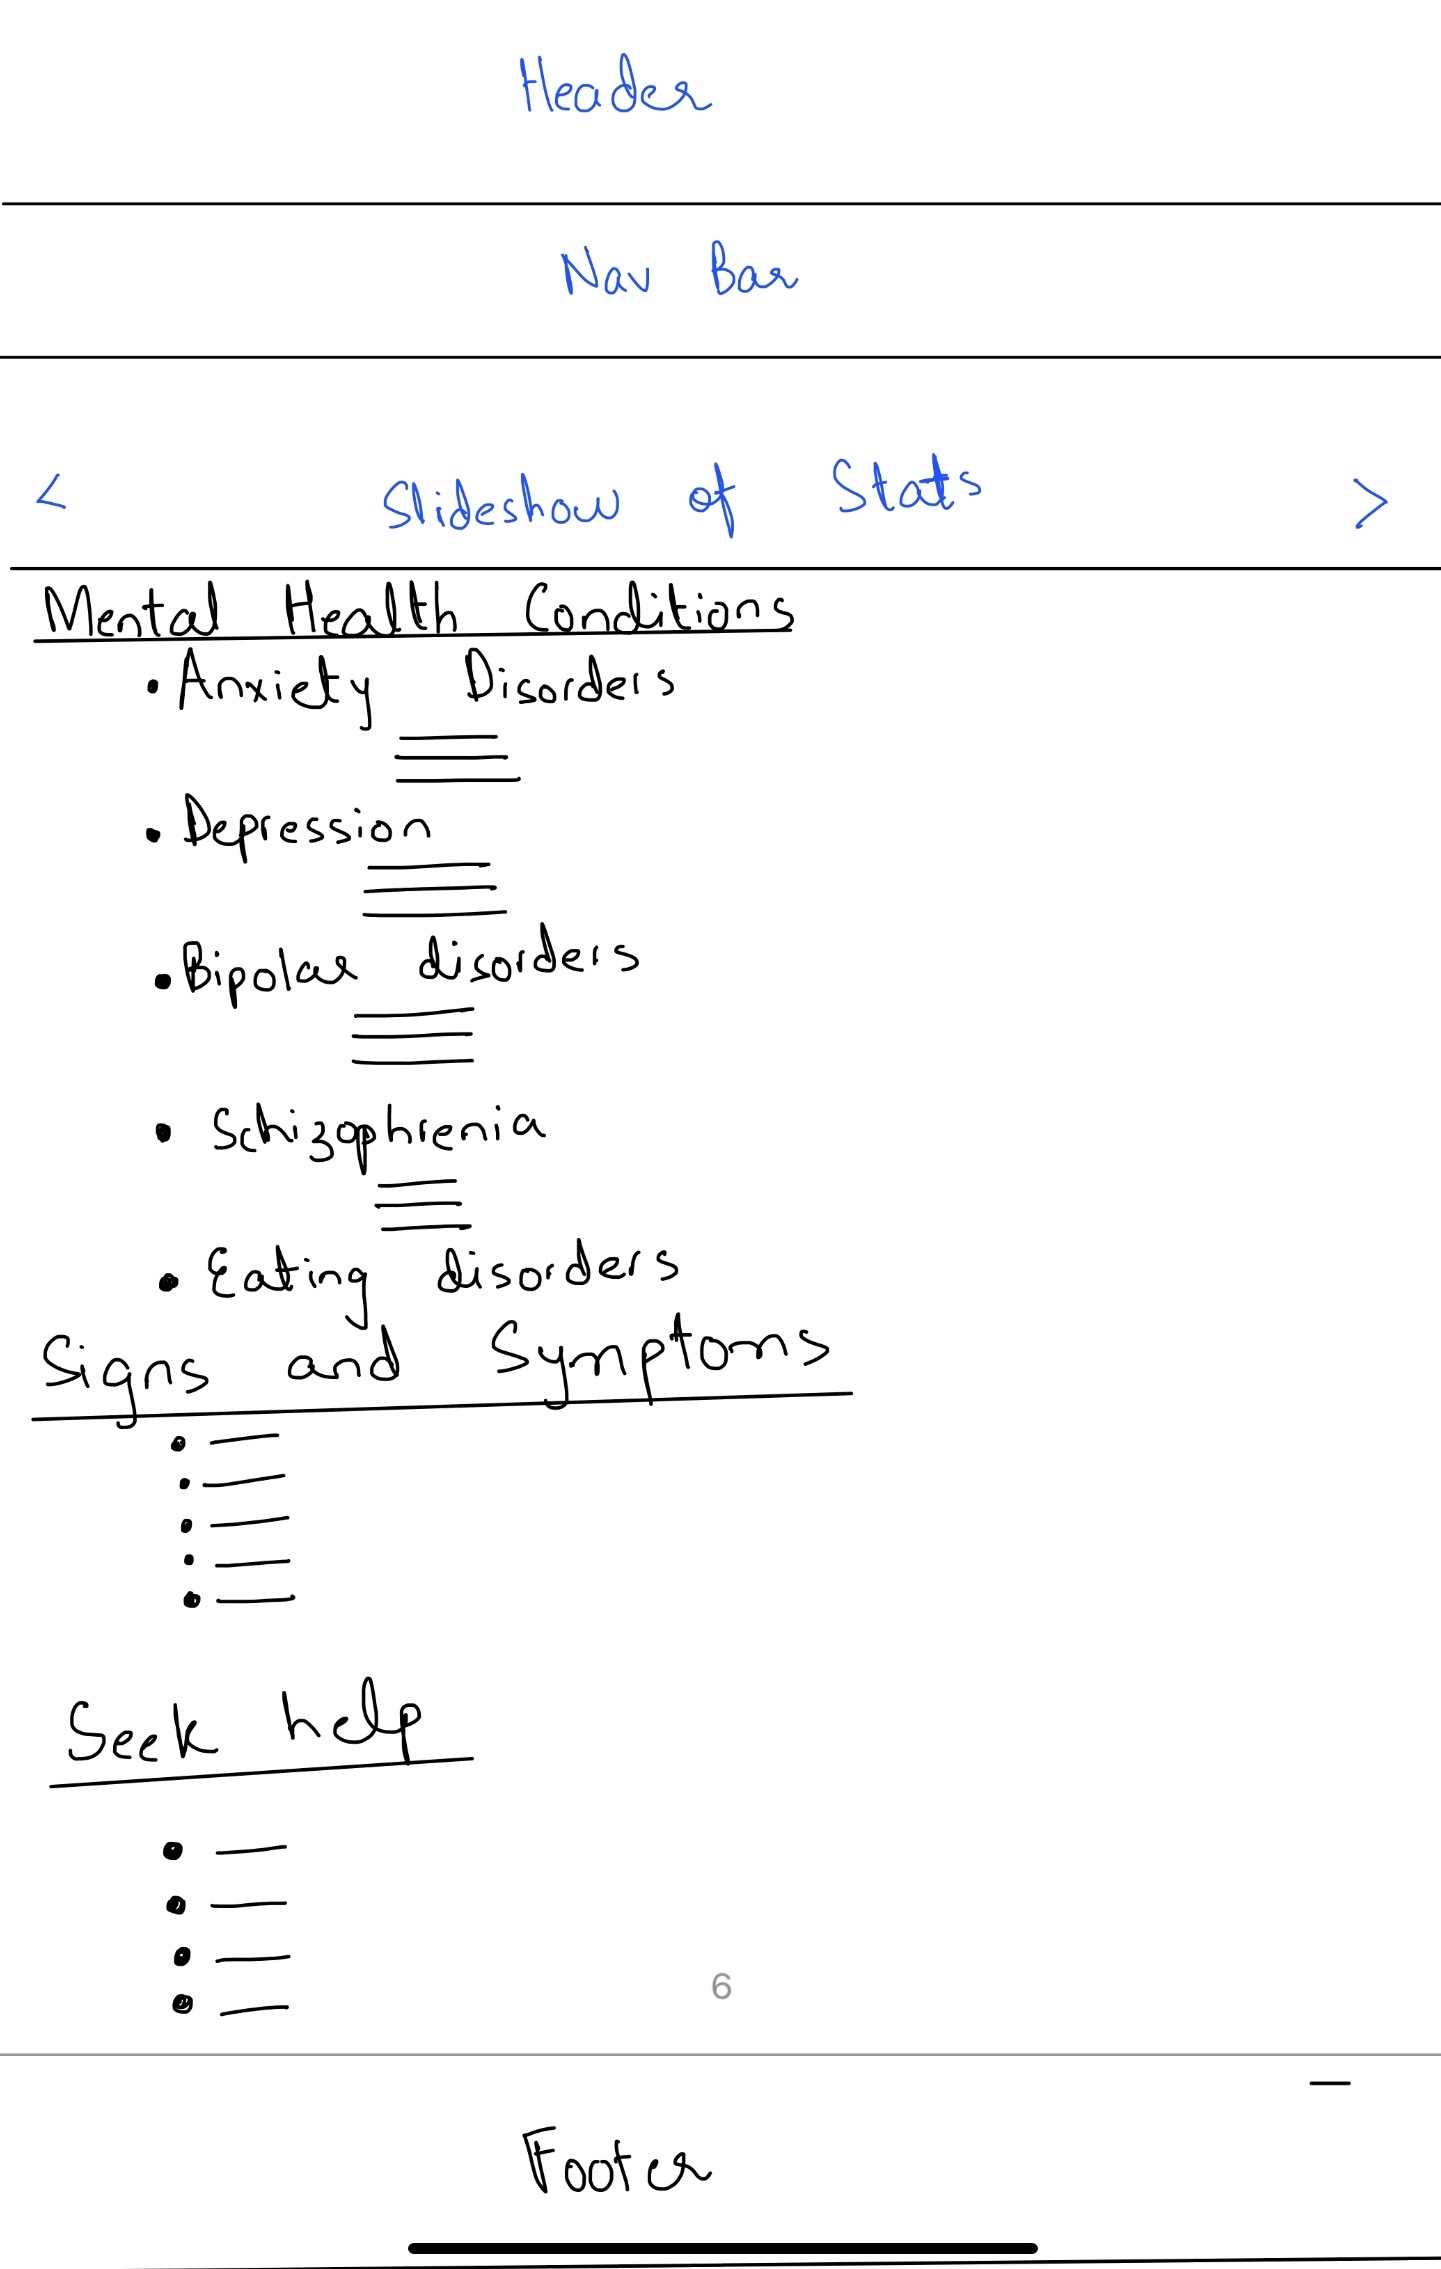 Header
Nav Bar
< Slideshow of Stats >
Mental Health Conditions
• Anxiety Disorders
• Depression
• Bipolar disorders
• Schizophrenia
• Eating disorders
Signs and Symptoms
Seek help
6
Footer